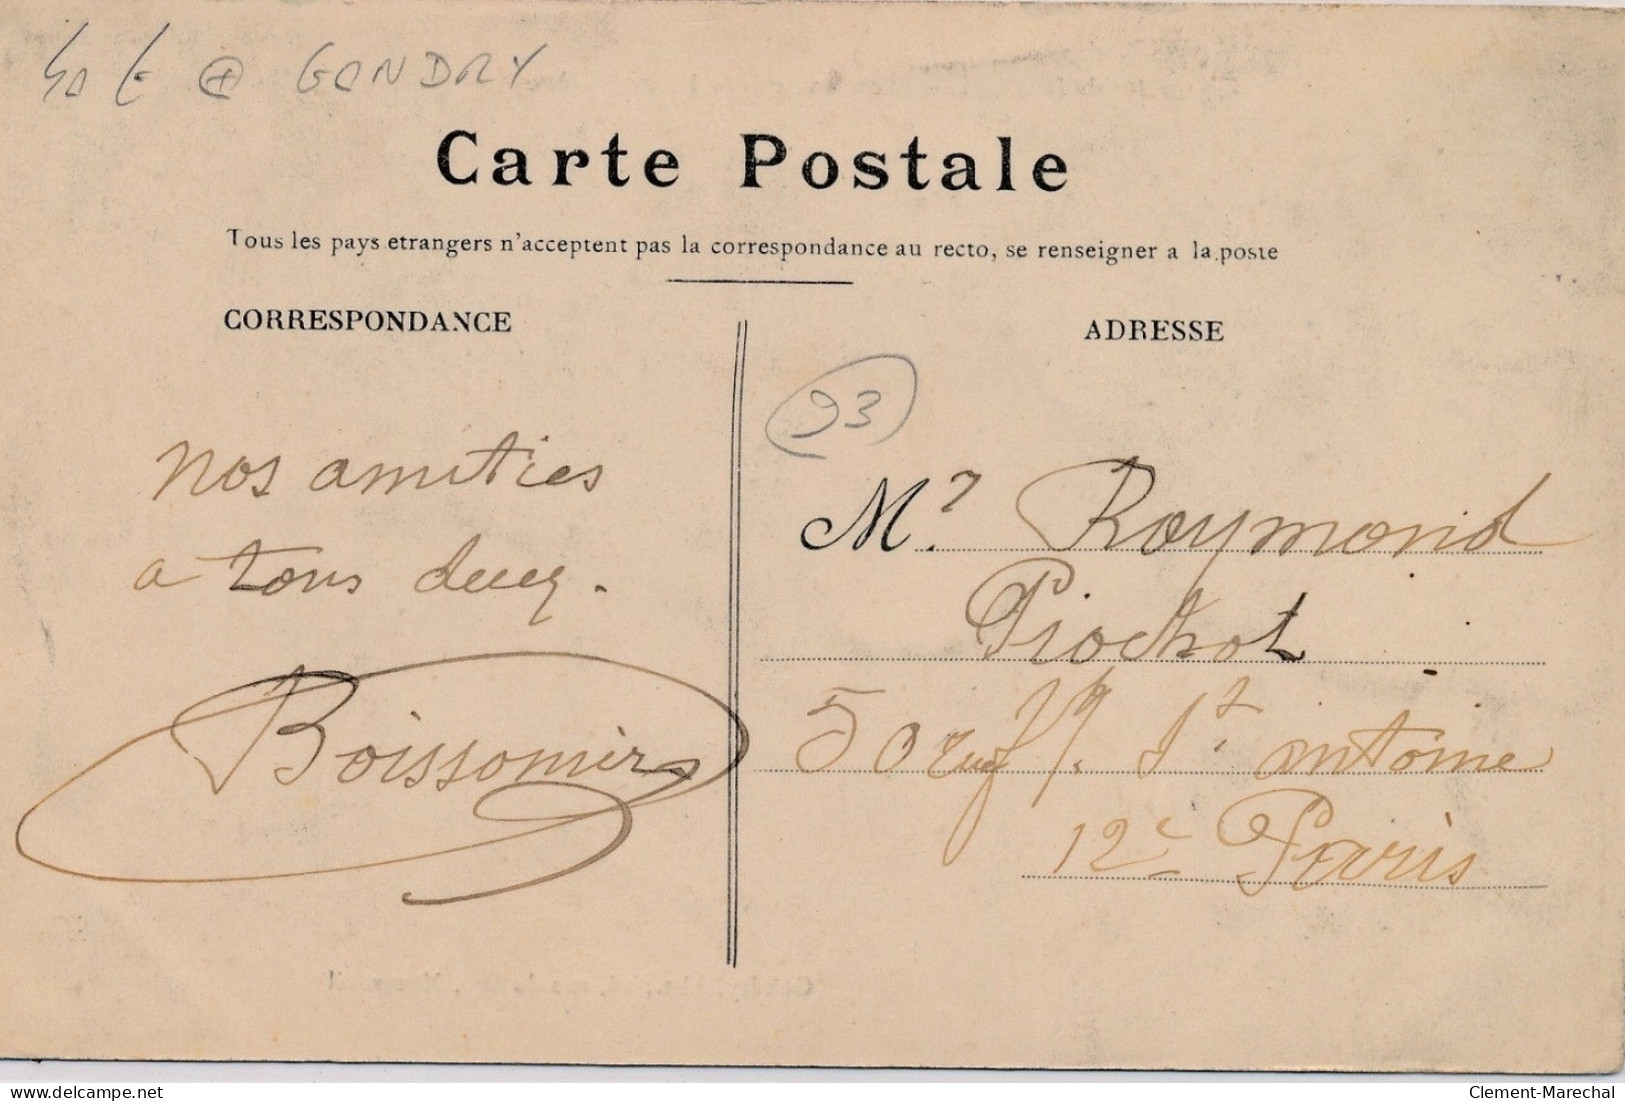 GONDRY
Carte Postale
Tous les pays etrangers n'acceptent pas la correspondance au recto, se renseigner a la poste
CORRESPONDANCE
ADRESSE
93
nos amities
a tous deux.
Boissonnier
M.r Raymond
Piochot
50 rue f/g. St antoine
12e Paris
delcampe.net
Clement-Marechal